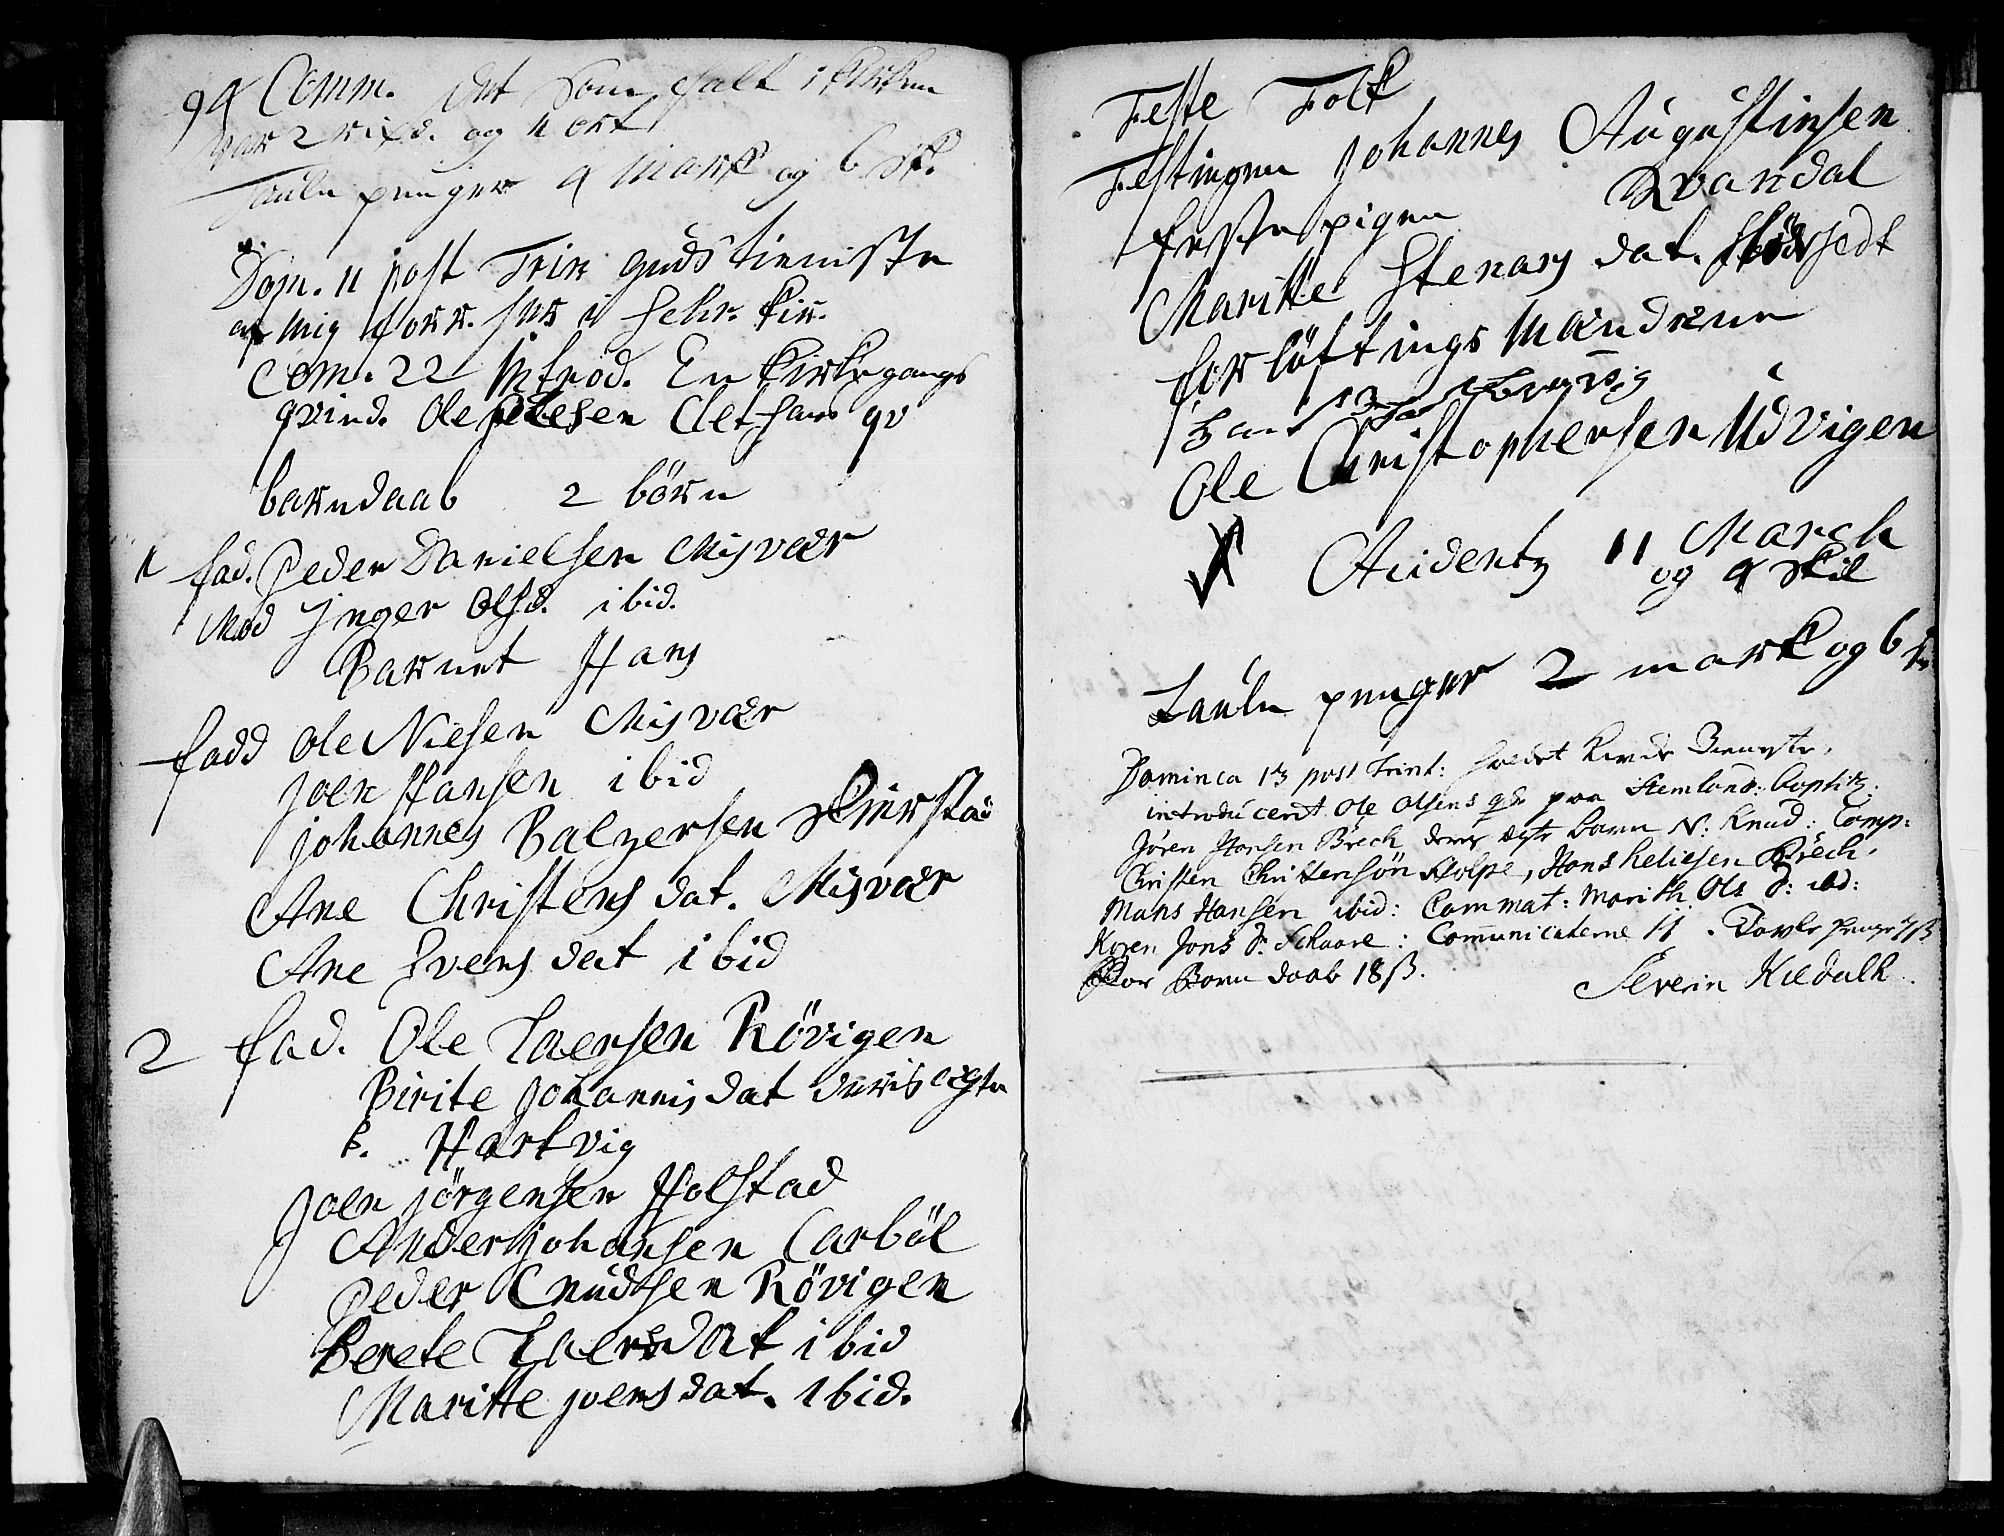 94 Comm. det som falt i kirken
var 2 rixd. og 4 ort
Taule penger 4 Mark og 6 sk.
Dom. 11 post Trin guds tieniste
af mig forr.
Com. 22 Introd. En kirkegangs
qvind. Ole Olesen hans qv
barndaab 2 börn
1 fad. Peder Danielsen Misvær
Mod Inger Olsd. ibid.
Barnet Hans
fadd Ole Nielsen Misvær
Joen Hansen ibid
Johannes Balzersen
Ane Christens dat. Misvær
Ane Ivers dat ibid
2 fad. Ole Laersen Rövigen
Birite Johannis dat deris ægte
b. Hartvig
Joen Jörgensen Holstad
Anders Johansen Carböl
Peder Cnudsen Rövigen
Berete Laersdat ibid
Maritte Joens dat. ibid.
Feste Folk
Festingen Johannes Augustinsen
Kvandal
feste pigen
Maritte Stenars dat.
forlöftings Mændrene
Ole Christophersen Udvigen
Accidentz 11 March
og 4 skil
Taule penger 2 mark og 6
Dominca 13 post Trinit: holdet
introducerit Ole Olsens qv: paa
Jören Hansen Brech deres ægte barn N: Knud: Comp:
Christen Christensön Stolpe, Hans Brech,
Mans Hansen ibid: Commat: Marith Ols d: ibd:
Karen Jons d: Schaare: Communicaterne 11. Tavle Penge
For Barn daab 18 ß.
Severin Kildalh.